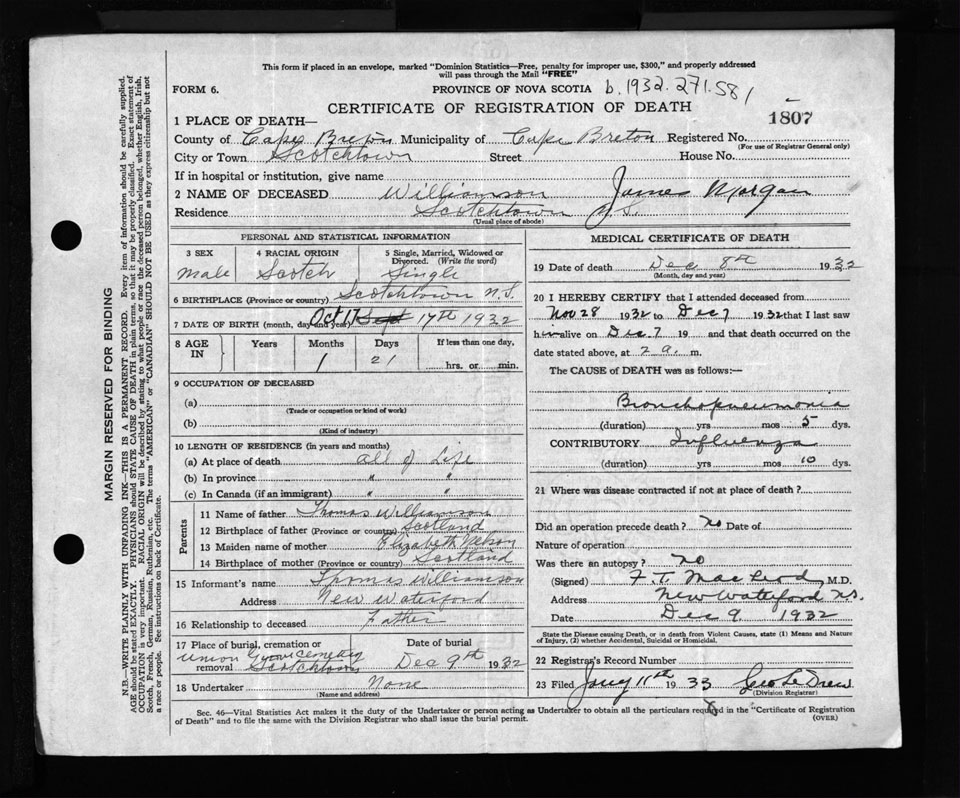 This form if placed in an envelope, marked "Dominion Statistics—Free, penalty for improper use, $300," and properly addressed
will pass through the Mail "FREE"
FORM 6. PROVINCE OF NOVA SCOTIA b. 1932. 271.581
CERTIFICATE OF REGISTRATION OF DEATH
1807
1 PLACE OF DEATH—
County of Cape Breton Municipality of Cape Breton Registered No.
(For use of Registrar General only)
City or Town Scotchtown Street House No.
If in hospital or institution, give name
2 NAME OF DECEASED Williamson James Morgan
Residence Scotchtown N.S.
(Usual place of abode)
PERSONAL AND STATISTICAL INFORMATION
3 SEX 4 RACIAL ORIGIN 5 Single, Married, Widowed or
Divorced. (Write the word)
Male Scotch Single
6 BIRTHPLACE (Province or country) Scotchtown N.S.
7 DATE OF BIRTH (month, day and year) Oct 17 Sept 17th 1932
8 AGE IN Years Months Days If less than one day,
1 21 hrs. or min.
9 OCCUPATION OF DECEASED
(a)
(Trade or occupation or kind of work)
(b)
(Kind of industry)
10 LENGTH OF RESIDENCE (in years and months)
(a) At place of death all of Life
(b) In province " "
(c) In Canada (if an immigrant) " "
Parents
11 Name of father Thomas Williamson
12 Birthplace of father (Province or country) Scotland
13 Maiden name of mother Elizabeth Nelson
14 Birthplace of mother (Province or country) Scotland
15 Informant's name Thomas Williamson
Address New Waterford
16 Relationship to deceased Father
17 Place of burial, cremation or Date of burial
removal Union Grove Cemetery
Scotchtown Dec 9th 1932
18 Undertaker None
(Name and address)
MEDICAL CERTIFICATE OF DEATH
19 Date of death Dec 8th 1932
(Month, day and year)
20 I HEREBY CERTIFY that I attended deceased from
Nov 28 1932 to Dec 7 1932 that I last saw
him alive on Dec 7 19 and that death occurred on
date stated above, at 2 a. m.
The CAUSE of DEATH was as follows:—
Bronchopneumonia
(duration) yrs mos 5 dys.
CONTRIBUTORY Influenza
(duration) yrs mos 10 dys.
21 Where was disease contracted if not at place of death?
Did an operation precede death? no Date of
Nature of operation
Was there an autopsy? no
(Signed) F. T. MacLeod, M.D.
Address New Waterford N.S.
Date Dec 9 1932
State the Disease causing Death, or in death from Violent Causes, state (1) Means and Nature
of Injury, (2) whether Accidental, Suicidal or Homicidal.
22 Registrar's Record Number
23 Filed Jany 11th 1933 Geo Le Drew
(Division Registrar)
Sec. 46—Vital Statistics Act makes it the duty of the Undertaker or person acting as Undertaker to obtain all the particulars required in the "Certificate of Registration
of Death" and to file the same with the Division Registrar who shall issue the burial permit. (OVER)
MARGIN RESERVED FOR BINDING
N.B.—WRITE PLAINLY WITH UNFADING INK—THIS IS A PERMANENT RECORD. Every item of information should be carefully supplied.
AGE should be stated EXACTLY. PHYSICIANS should STATE CAUSE OF DEATH in plain terms, so that it may be properly classified. Exact statement of
OCCUPATION is very important. RACIAL ORIGIN will be described by stating to what people or race the deceased person belonged, whether English, Irish,
Scotch, French, German, Russian, Ruthenian, etc. The terms "AMERICAN" or "CANADIAN" SHOULD NOT BE USED as they express citizenship but not
a race or people. See instructions on back of Certificate.